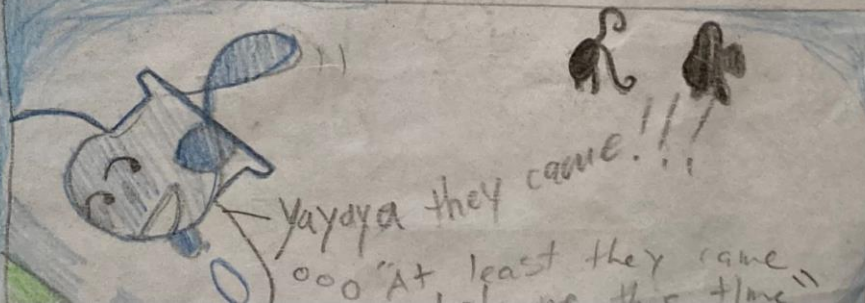 Yayaya they came!!!
"At least they came
time"